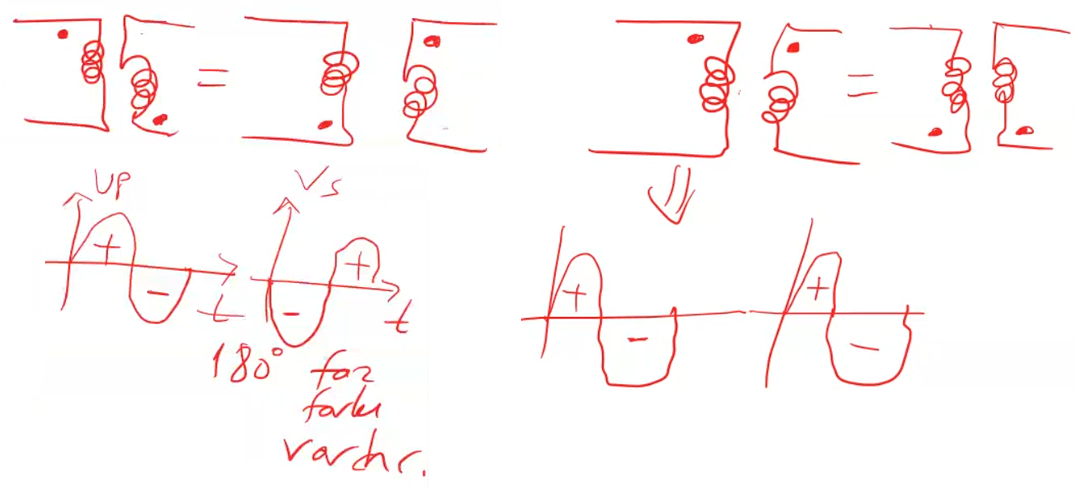 = =
VP Vs
+ - t - + t + - + -
180° faz
farkı
vardır.